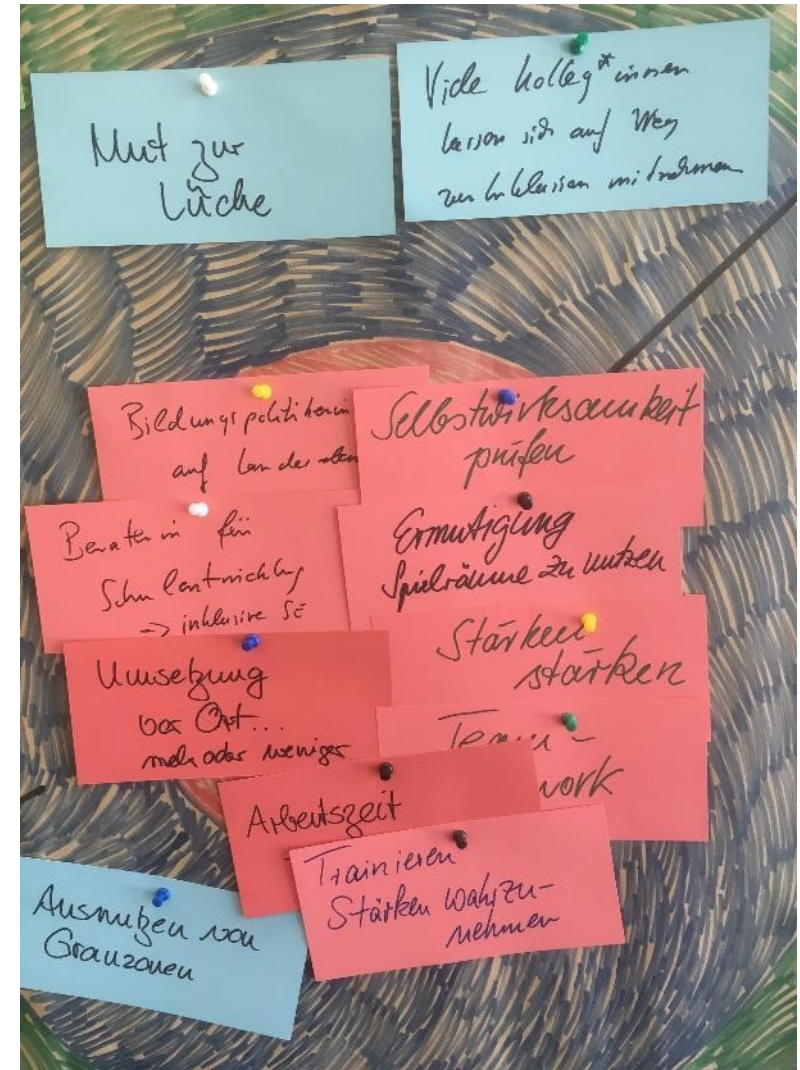 Mut zur
Lücke
Viele Kolleg*innen
lassen sich auf Weg
zur Inklusion mitnehmen
Bildungspolitikerin
auf Landesebene
Selbstwirksamkeit
prüfen
Beraterin für
Schulentwicklung
-> inklusive SE
Ermutigung
Spielräume zu nutzen
Umsetzung
vor Ort...
mehr oder weniger
Stärken
stärken
Team-
work
Arbeitszeit
Trainieren
Stärken wahrzu-
nehmen
Ausnutzen von
Grauzonen